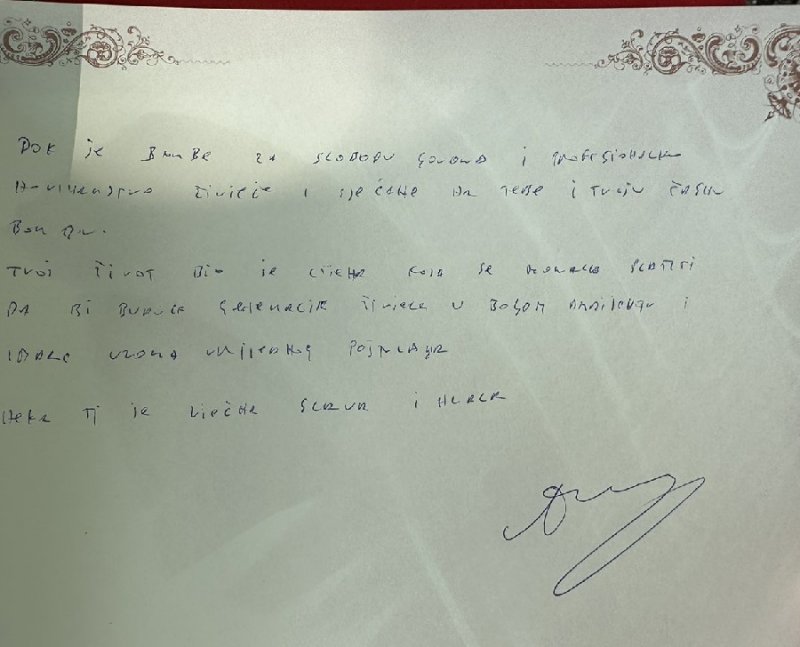 Dok je borbe za slobodu govora i profesionalno
novinarstvo živjeće i sjećanje na tebe i tvoju časnu
borbu.
Tvoj život bio je cijena koja se morala platiti
da bi buduće generacije živjele u boljem ambijentu i
imale uzora vrijednog poštovanja
Neka ti je vječna slava i hvala